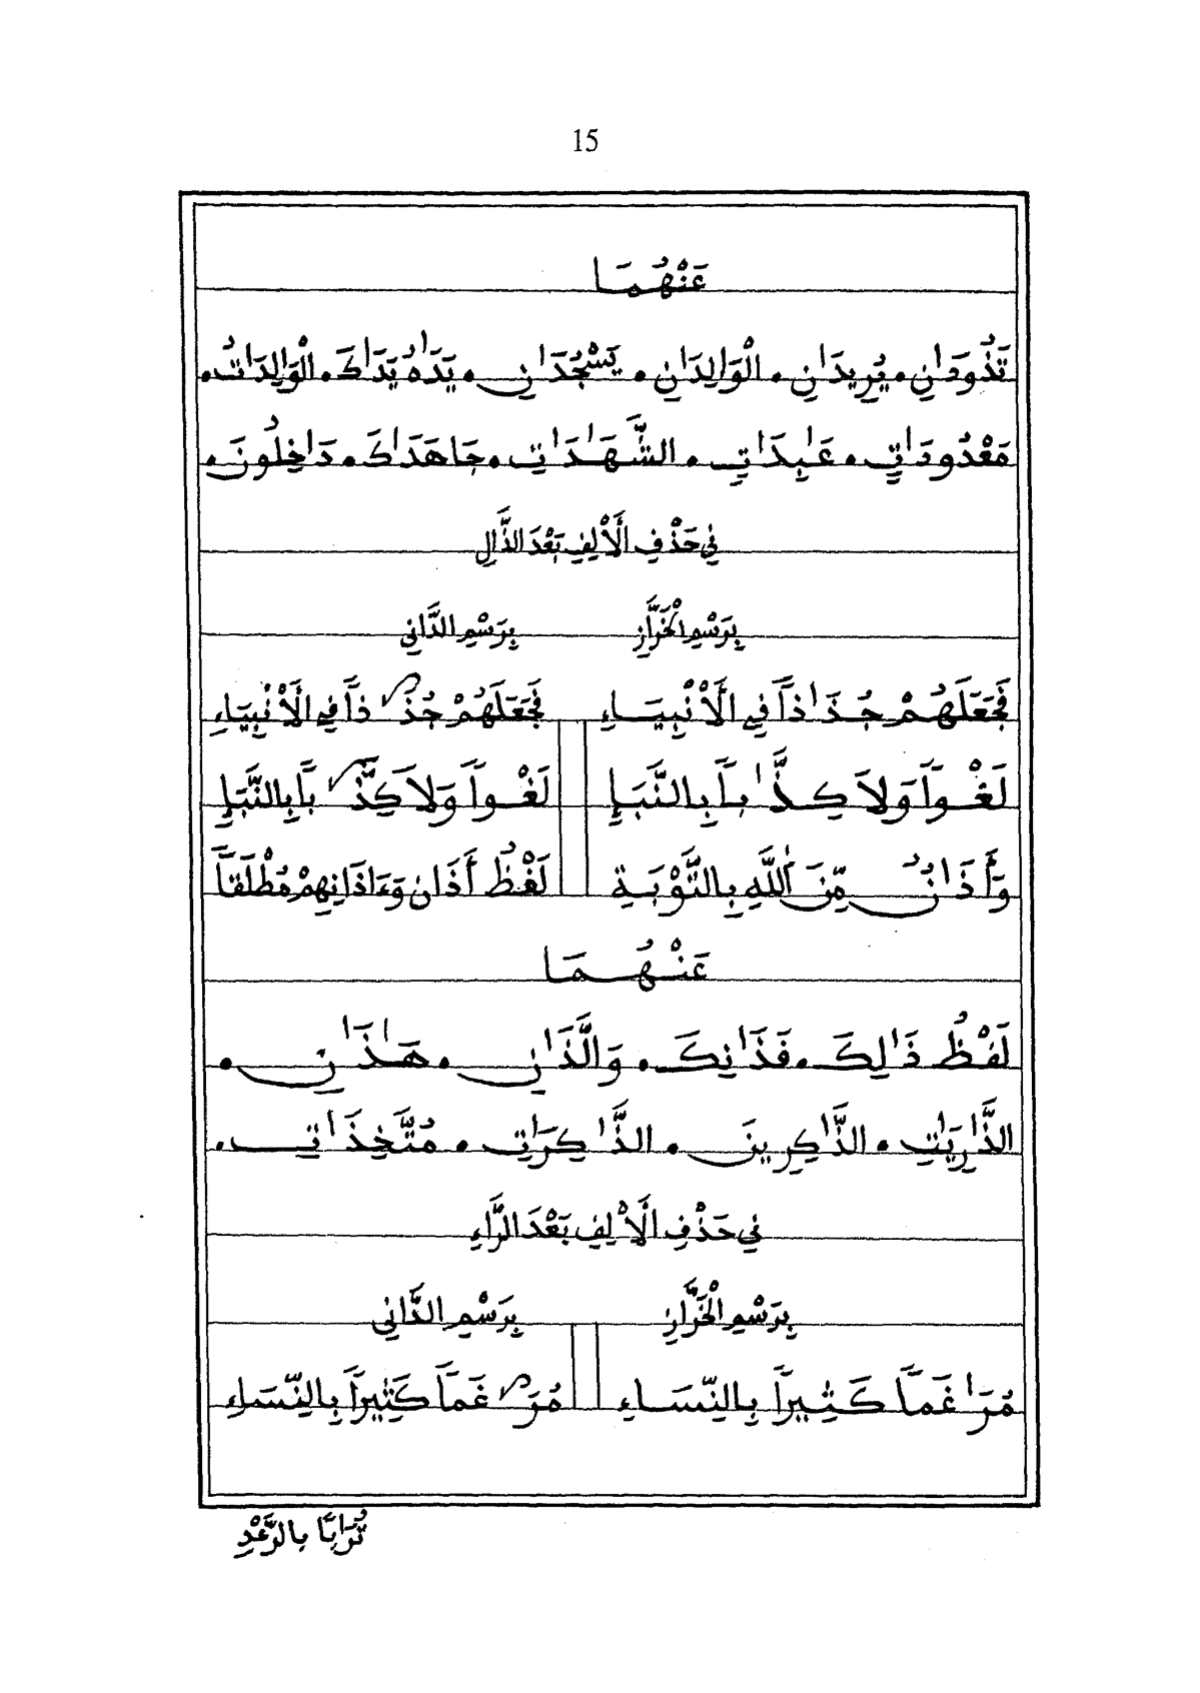 15
عَنْهُمَا
تَذُودَٰنِ • يُرِيدَٰنِ • الْوَٰلِدَٰنِ • يَسْجُدَٰنِ • يَدَٰهُ يَدَٰكَ • الْوَٰلِدَٰتُ •
مَعْدُودَٰتٍ • عَٰبِدَٰتٍ • الشَّهَٰدَٰتِ • جَاهَدَٰكَ • دَٰخِلُونَ •
فِي حَذْفِ الْأَلِفِ بَعْدَ الذَّالِ
بِرَسْمِ الْخَرَّازِ بِرَسْمِ الدَّانِي
فَجَعَلَهُمْ جُذَٰذاً فِي الْأَنْبِيَاءِ فَجَعَلَهُمْ جُذَ ذاً فِي الْأَنْبِيَاءِ
لَغْواً وَلَا كِذَّٰباً بِالنَّبَإِ لَغْواً وَلَا كِذَّ باً بِالنَّبَإِ
وَأَذَٰنٌ مِّنَ اللَّهِ بِالتَّوْبَةِ لَفْظُ أَذَان وَءَاذَانِهِمْ مُطْلَقاً
عَنْهُمَا
لَفْظُ ذَٰلِكَ • فَذَٰنِكَ • وَالَّذَٰنِ • هَٰذَٰنِ •
الذَّٰرِيَٰتِ • الذَّٰكِرِينَ • الذَّٰكِرَٰتِ • مُتَّخِذَٰتِ •
فِي حَذْفِ الْأَلِفِ بَعْدَ الرَّاءِ
بِرَسْمِ الْخَرَّازِ بِرَسْمِ الدَّانِي
مُرَٰغَماً كَثِيراً بِالنِّسَاءِ مُرَ غَماً كَثِيراً بِالنِّسَاءِ
تُرَٰباً بِالرَّعْدِ